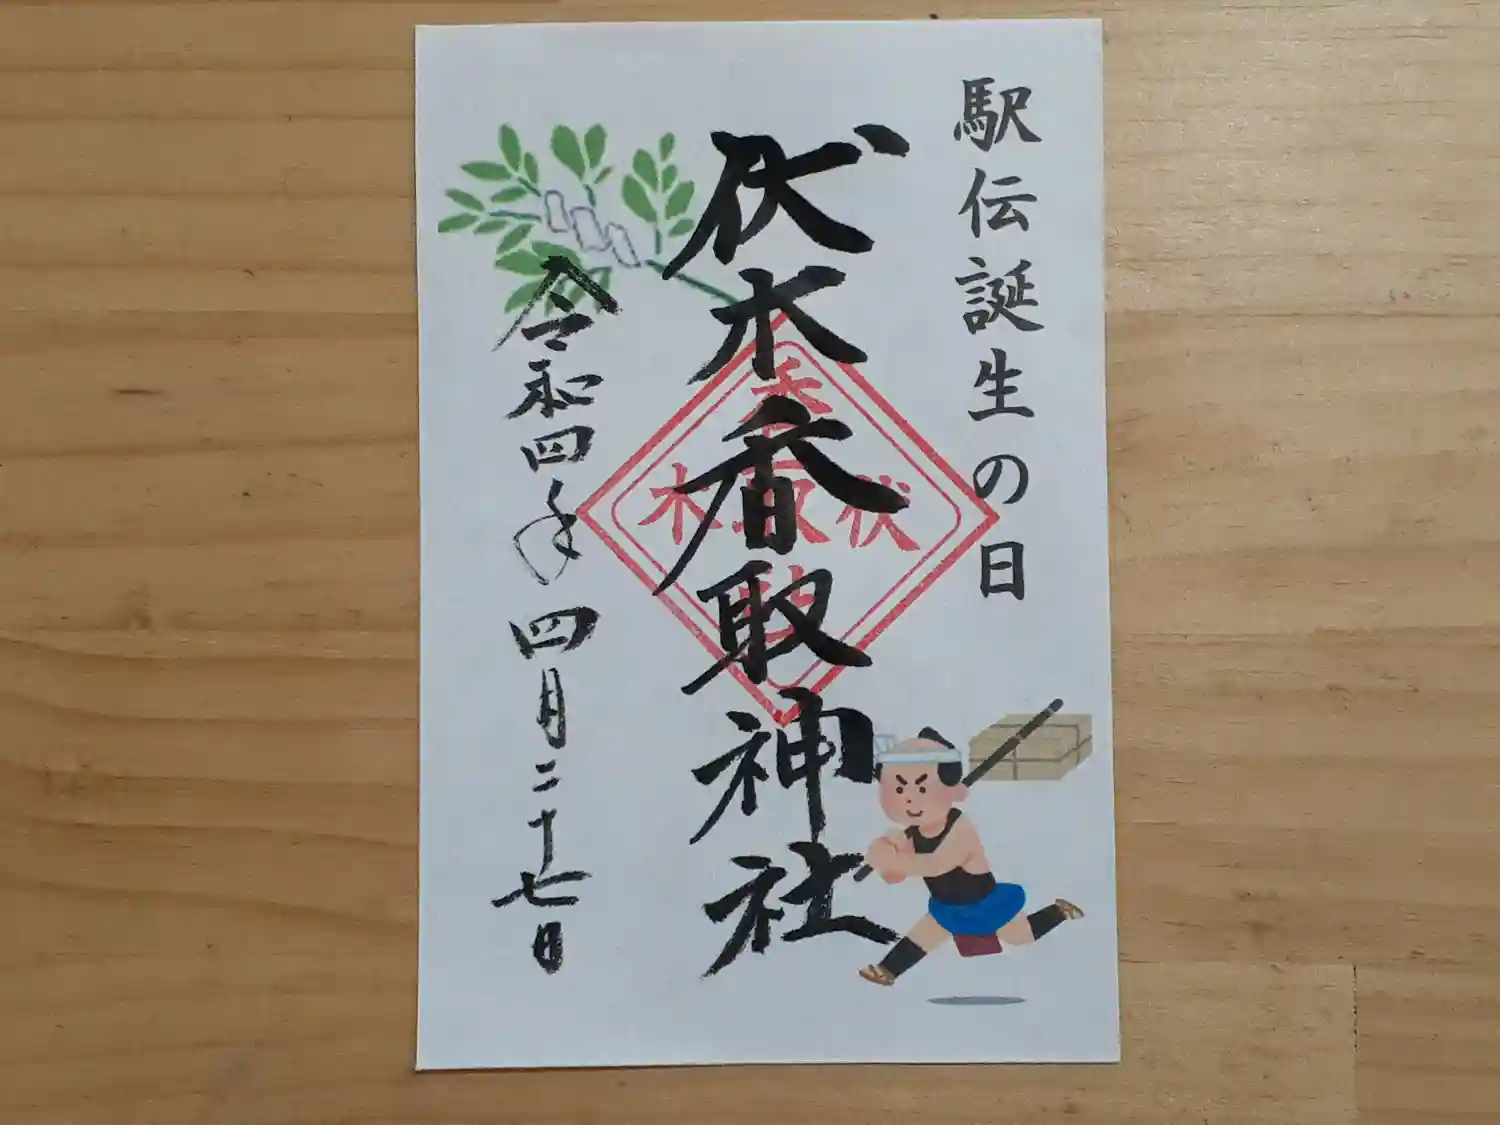 駅伝誕生の日
伏木香取神社
令和四年四月二十七日
香
木取伏